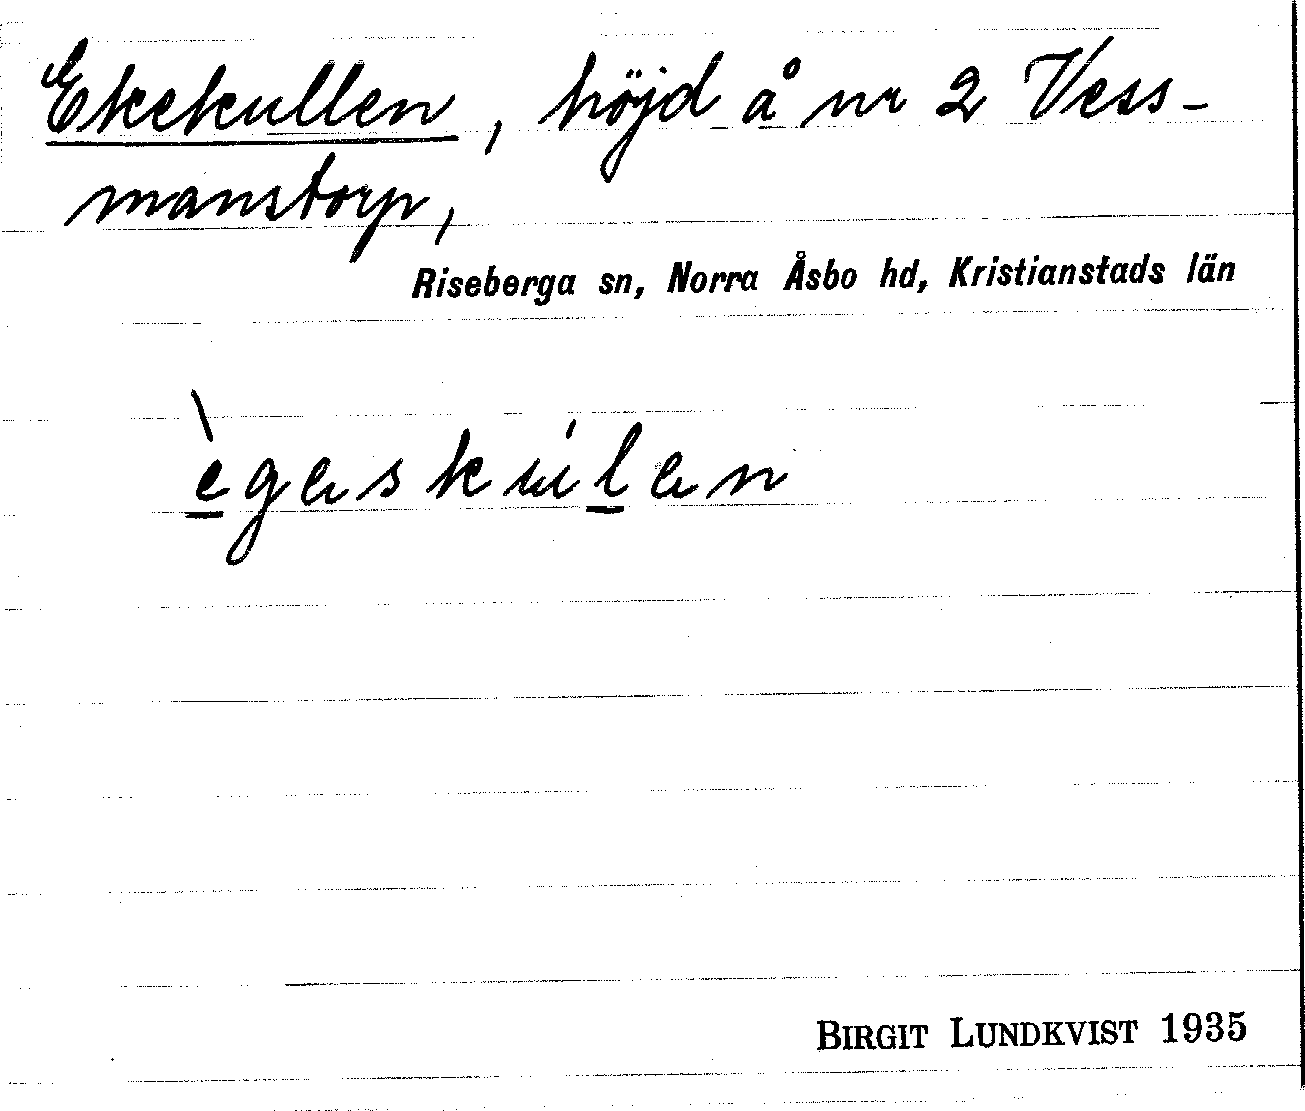 Ekekullen, höjd å nr 2 Vess-
manstorp,
Riseberga sn, Norra Åsbo hd, Kristianstads län
BIRGIT LUNDKVIST 1935